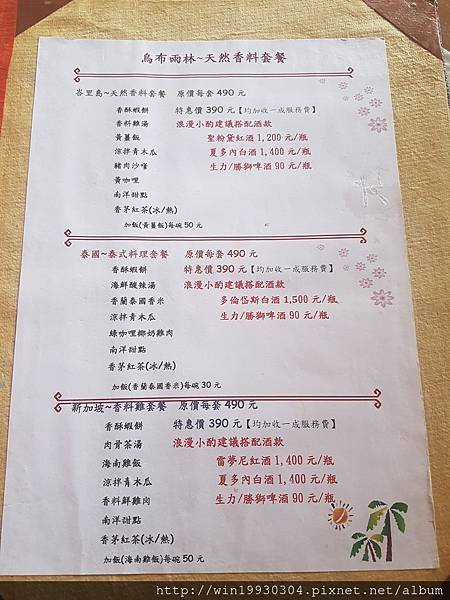 烏布雨林~天然香料套餐
峇里島~天然香料套餐 原價每套 490 元
香酥蝦餅 特惠價 390 元【均加收一成服務費】
香料雞湯 浪漫小酌建議搭配酒款
黃薑飯 聖粉黛紅酒 1,200 元/瓶
涼拌青木瓜 夏多內白酒 1,400 元/瓶
豬肉沙嗲 生力/勝獅啤酒 90 元/瓶
黃咖哩
南洋甜點
香茅紅茶(冰/熱)
加飯(黃薑飯)每碗 50 元
泰國~泰式料理套餐 原價每套 490 元
香酥蝦餅 特惠價 390 元【均加收一成服務費】
海鮮酸辣湯 浪漫小酌建議搭配酒款
香蘭泰國香米 多倫岱斯白酒 1,500 元/瓶
涼拌青木瓜 生力/勝獅啤酒 90 元/瓶
綠咖哩椰奶雞肉
南洋甜點
香茅紅茶(冰/熱)
加飯(香蘭泰國香米)每碗 30 元
新加坡~香料雞套餐 原價每套 490 元
香酥蝦餅 特惠價 390 元【均加收一成服務費】
肉骨茶湯 浪漫小酌建議搭配酒款
海南雞飯 雷夢尼紅酒 1,400 元/瓶
涼拌青木瓜 夏多內白酒 1,400 元/瓶
香料鮮雞肉 生力/勝獅啤酒 90 元/瓶
南洋甜點
香茅紅茶(冰/熱)
加飯(海南雞飯)每碗 50 元
http://win19930304.pixnet.net/album